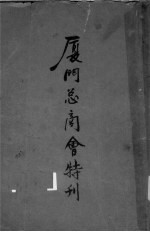 厦門总商會特刊